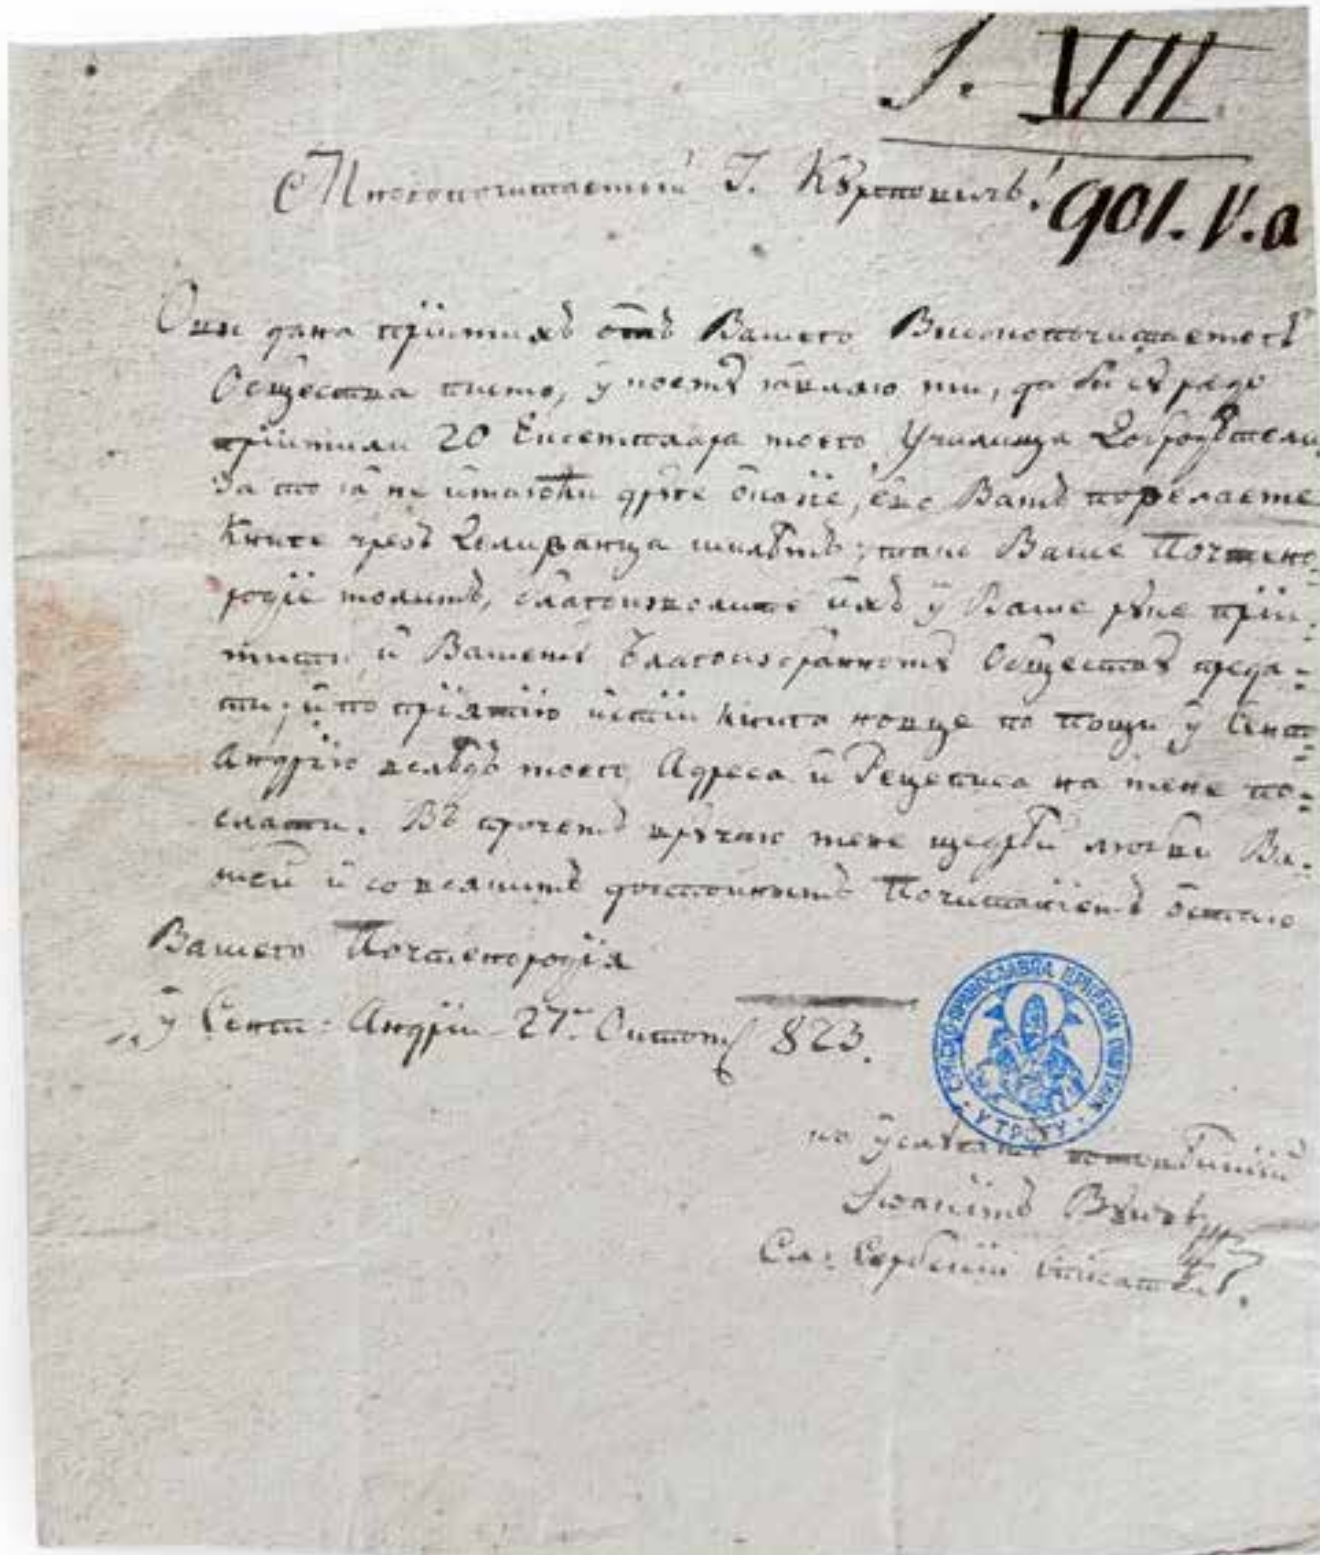 S. VII.
Многопочитаемый Г. Кȣртовичъ!
901.V.a
Ови дана пріимихъ ѿтъ Вашего Высокопочитаемогъ
Общества писмо, у коемъ ми, да би се радо
пріимили 20 Ексемплара моего Училища Добродѣтели,
За то я не имаюћи дрȣге, ево Вамъ
Книге чрезъ Делижанца шилѣмъ; тако Ваше Почтено-
родіе молимъ, благоизволите ихъ у Ваше рȣке пріи-
мити, и Вашемȣ Благоизбранномȣ Обществȣ преда-
ти; и по пріятію истіи книга новце по пощи у Сент-
Андрію вслѣдъ моегъ Адреса и Рецеписа на мене по-
слати. Въ прочемъ врȣчаю мене щедрѣй любви Ва-
шей и со всякимъ достойнымъ Почитаніемъ остаю
Вашего Почтенородія
у Сент-Андріи 27. Октом 823.
СРПСКО-ПРАВОСЛАВНА ЦРКВЕНА ОПШТИНА
У ТРСТУ
ко услȣгамъ
Іоакимъ Вȣичъ
Сл: Сербскій Списатель.